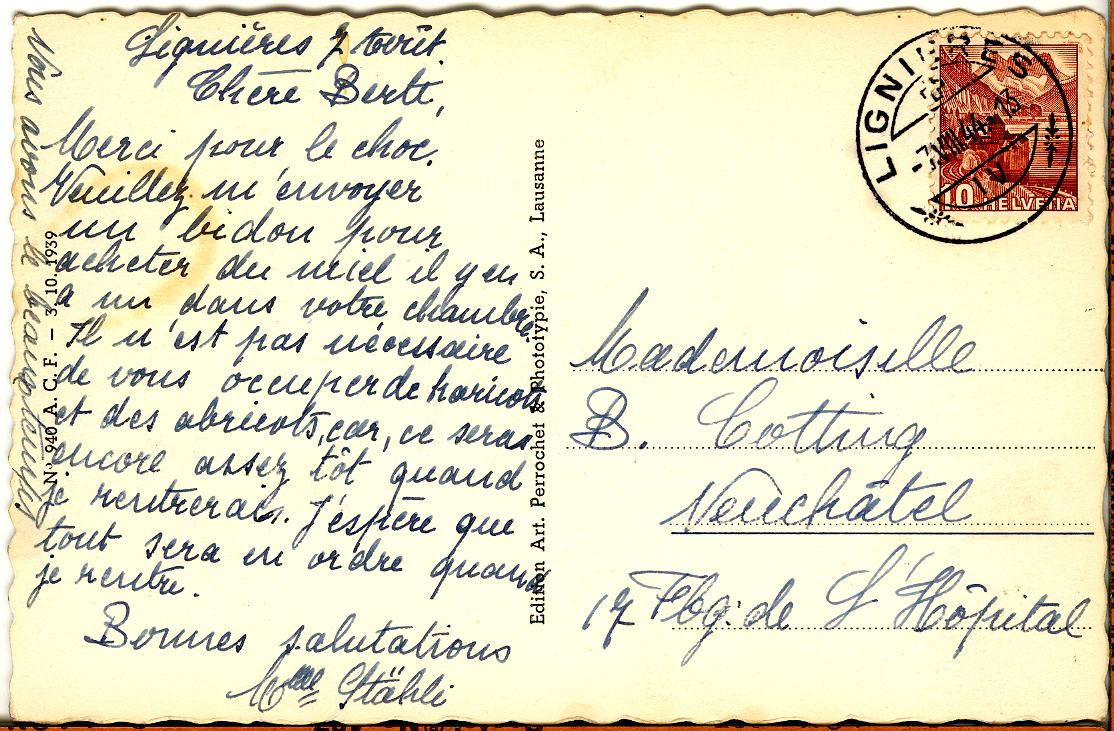 Lignières 7 Août.
Chère Berti,
Merci pour le choc.
Veuillez m'envoyer
un bidon pour
acheter du miel il y en
a un dans votre chambre
Il n'est pas nécessaire
de vous occuper de haricots
et des abricots, car, ce seras
encore assez tôt quand
je rentrerais. J'éspère que
tout sera en ordre quand
je rentre.
Bonnes salutations
Mme Stähli
Vous avons le beau temps
N° 940 A. C. F. — 3. 10. 1939
Edition Art. Perrochet & Phototypie, S. A., Lausanne
LIGNIÈRES
-7.VIII.44-13
10 HELVETIA
Mademoiselle
B. Cotting
Neuchâtel
17 Fbg. de L'Hôpital